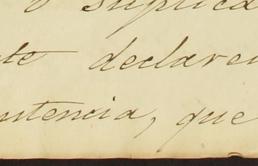 o suplica
te declarei
utencia, que